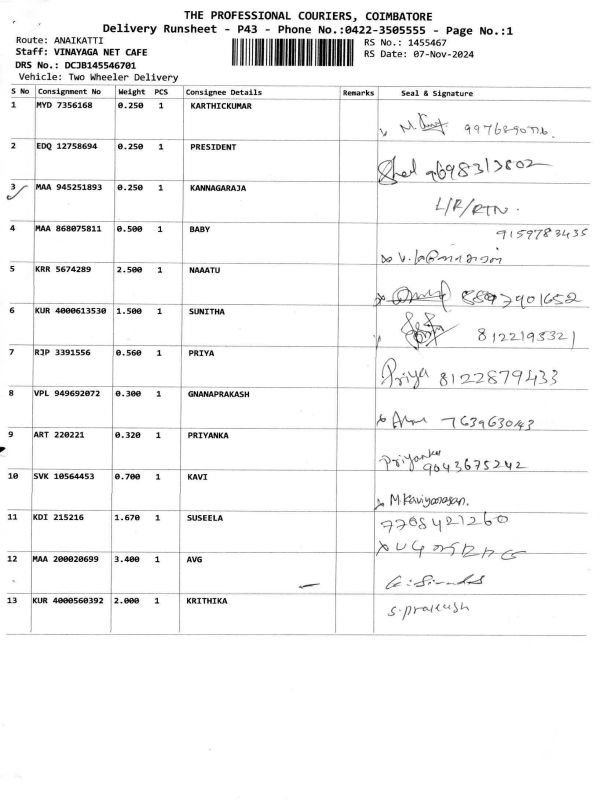 THE PROFESSIONAL COURIERS, COIMBATORE
Delivery Runsheet - P43 - Phone No.:0422-3505555 - Page No.:1
Route: ANAIKATTI RS No.: 1455467
Staff: VINAYAGA NET CAFE RS Date: 07-Nov-2024
DRS No.: DCJB145546701
Vehicle: Two Wheeler Delivery
S No Consignment No Weight PCS Consignee Details Remarks Seal & Signature
1 MYD 7356168 0.250 1 KARTHICKUMAR
2 EDQ 12758694 0.250 1 PRESIDENT
9698313802
3 MAA 945251893 0.250 1 KANNAGARAJA
L/R/RTN.
4 MAA 868075811 0.500 1 BABY 9159783435
5 KRR 5674289 2.500 1 NAAATU
6 KUR 4000613530 1.500 1 SUNITHA
7 RJP 3391556 0.560 1 PRIYA
Priya 8122879433
8 VPL 949692072 0.300 1 GNANAPRAKASH
9 ART 220221 0.320 1 PRIYANKA
Priyanka
9043675242
10 SVK 10564453 0.700 1 KAVI
M.Kaviyarasan.
11 KDI 215216 1.670 1 SUSEELA
7708421260
12 MAA 200020699 3.400 1 AVG
13 KUR 4000560392 2.000 1 KRITHIKA
S.prakash